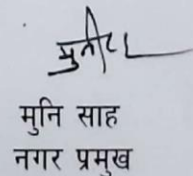 मुनि साह
नगर प्रमुख